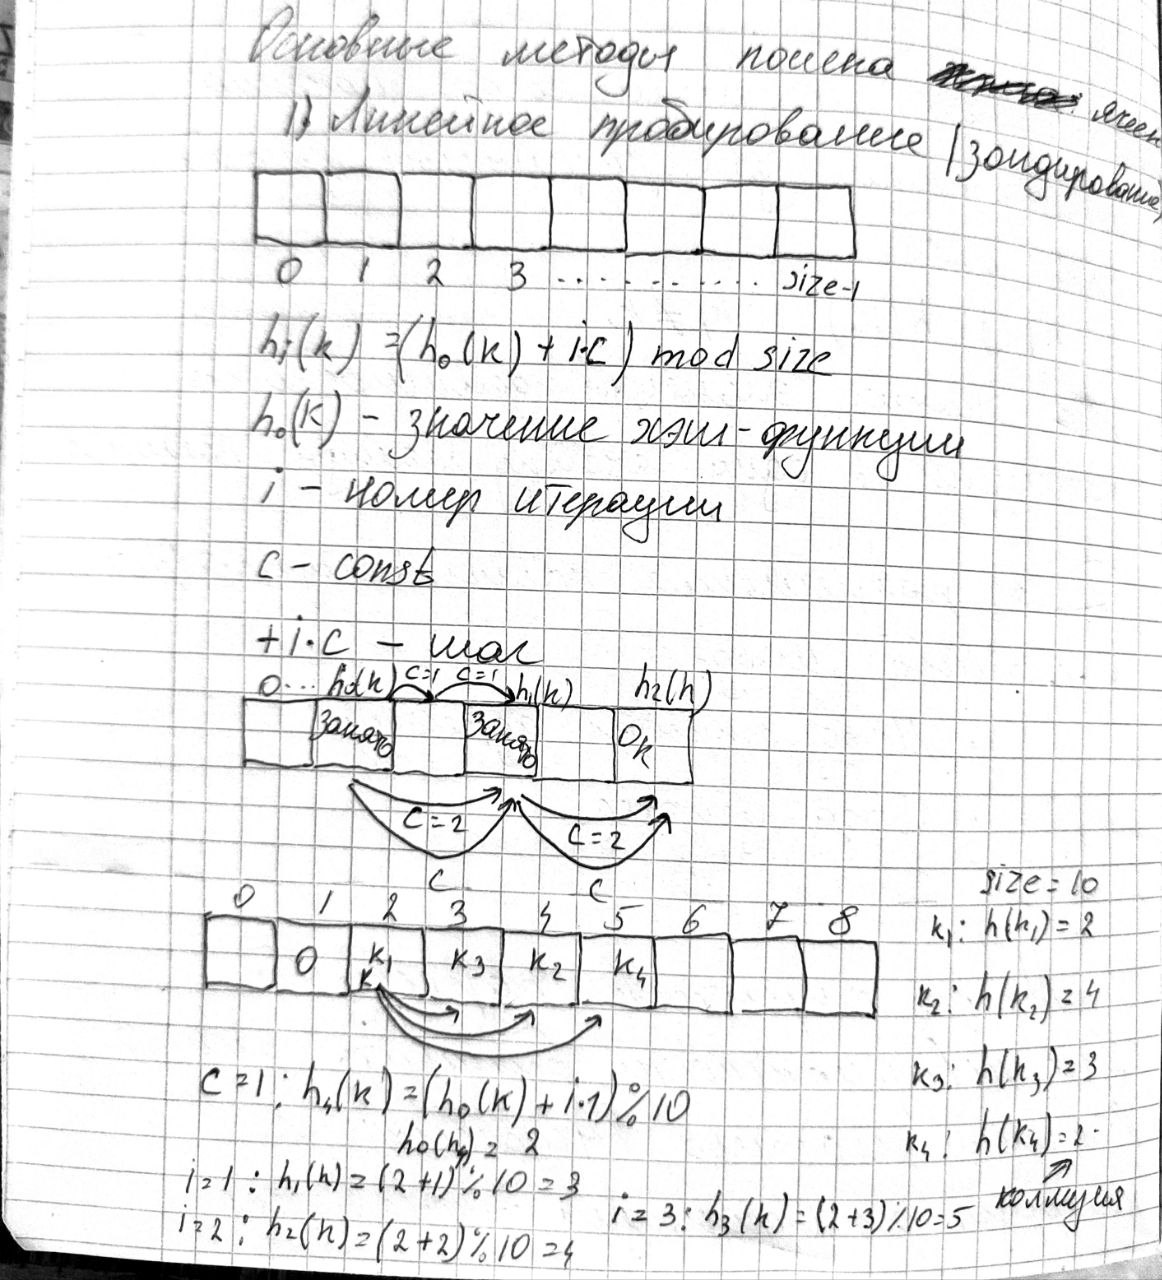 Основные методы поиска ячеек
1) Линейное пробирование (зондирование)
0 1 2 3 .......... size-1
hi(k) = (h₀(k) + i·c) mod size
h₀(k) - значение хэш-функции
i - номер итерации
c - const
+i·c - шаг
0... h₀(k) c=1 c=1 h₁(k) h₂(k)
Занято Занято Ок
c=2 c=2
c c
size=10
0 1 2 3 4 5 6 7 8
k₁: h(k₁)=2
0 k₁ k₃ k₂ k₄
k
k₂: h(k₂)=4
k₃: h(k₃)=3
c=1: h₄(k)=(h₀(k)+i·1)%10
k₄: h(k₄)=2
h₀(k₄)=2
i=1: h₁(k)=(2+1)%10=3
коллизия
i=3: h₃(k)=(2+3)%10=5
i=2: h₂(k)=(2+2)%10=4